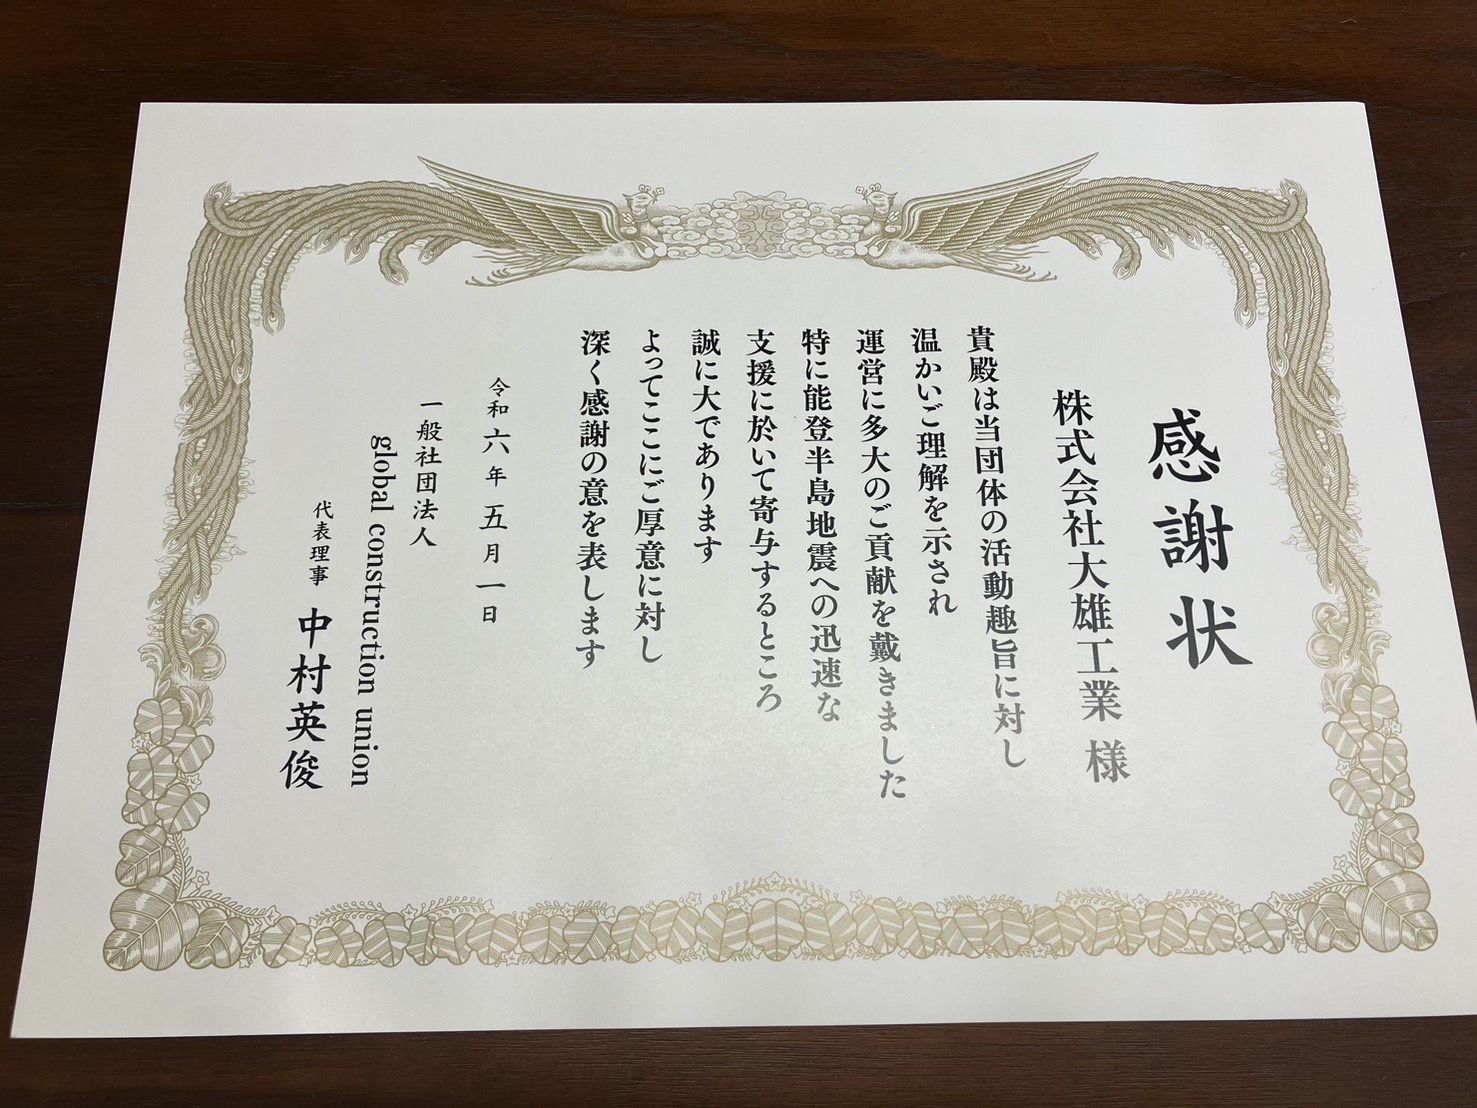 感謝状
株式会社大雄工業 様
貴殿は当団体の活動趣旨に対し
温かいご理解を示され
運営に多大のご貢献を戴きました
特に能登半島地震への迅速な
支援に於いて寄与するところ
誠に大であります
よってここにご厚意に対し
深く感謝の意を表します
令和六年五月一日
一般社団法人
global construction union
代表理事 中村英俊